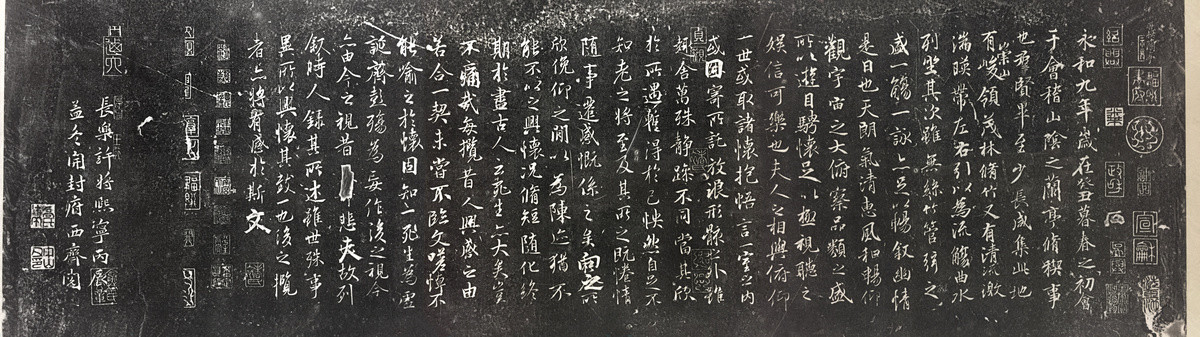 永和九年歲在癸丑暮春之初會
于會稽山陰之蘭亭脩稧事
也群賢畢至少長咸集此地
有崇山峻領茂林脩竹又有清流激
湍暎帶左右引以為流觴曲水
列坐其次雖無絲竹管弦之
盛一觴一詠亦足以暢敘幽情
是日也天朗氣清惠風和暢仰
觀宇宙之大俯察品類之盛
所以遊目騁懷足以極視聽之
娛信可樂也夫人之相與俯仰
一世或取諸懷抱悟言一室之內
或因寄所託放浪形骸之外雖
趣舍萬殊靜躁不同當其欣
於所遇暫得於己怏然自足不
知老之將至及其所之既惓情
隨事遷感慨係之矣向之所
欣俛仰之間以為陳迹猶不
能不以之興懷況脩短隨化終
期於盡古人云死生亦大矣豈
不痛哉每攬昔人興感之由
若合一契未嘗不臨文嗟悼不
能喻之於懷固知一死生為虛
誕齊彭殤為妄作後之視今
亦由今之視昔悲夫故列
敘時人錄其所述雖世殊事
異所以興懷其致一也後之攬
者亦將有感於斯文
長樂許將熙寧丙辰
孟冬開封府西齋閱